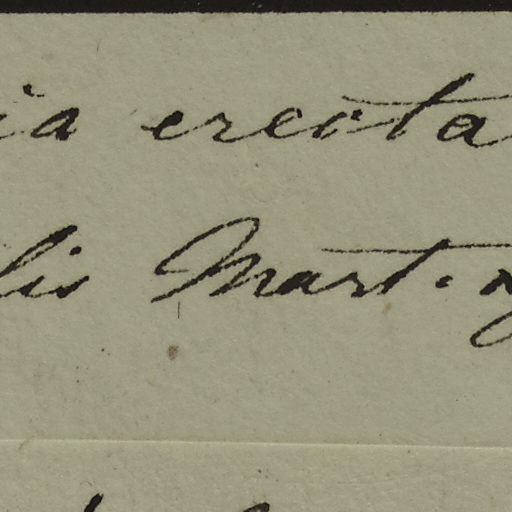 ia erecta
lis Mart.